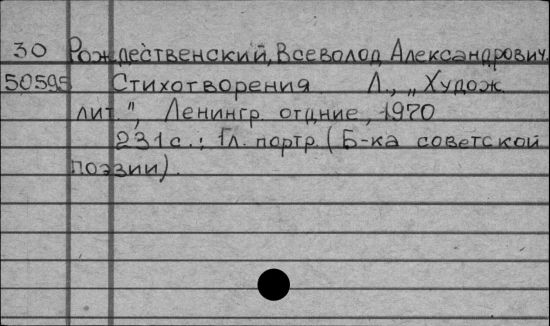 30 Рождественский, Всеволод Александрович.
50595 Стихотворения Л., „Худож.
лит.", Ленингр. отдние, 1970
231с.; 1л. портр. (Б-ка советской
поэзии).